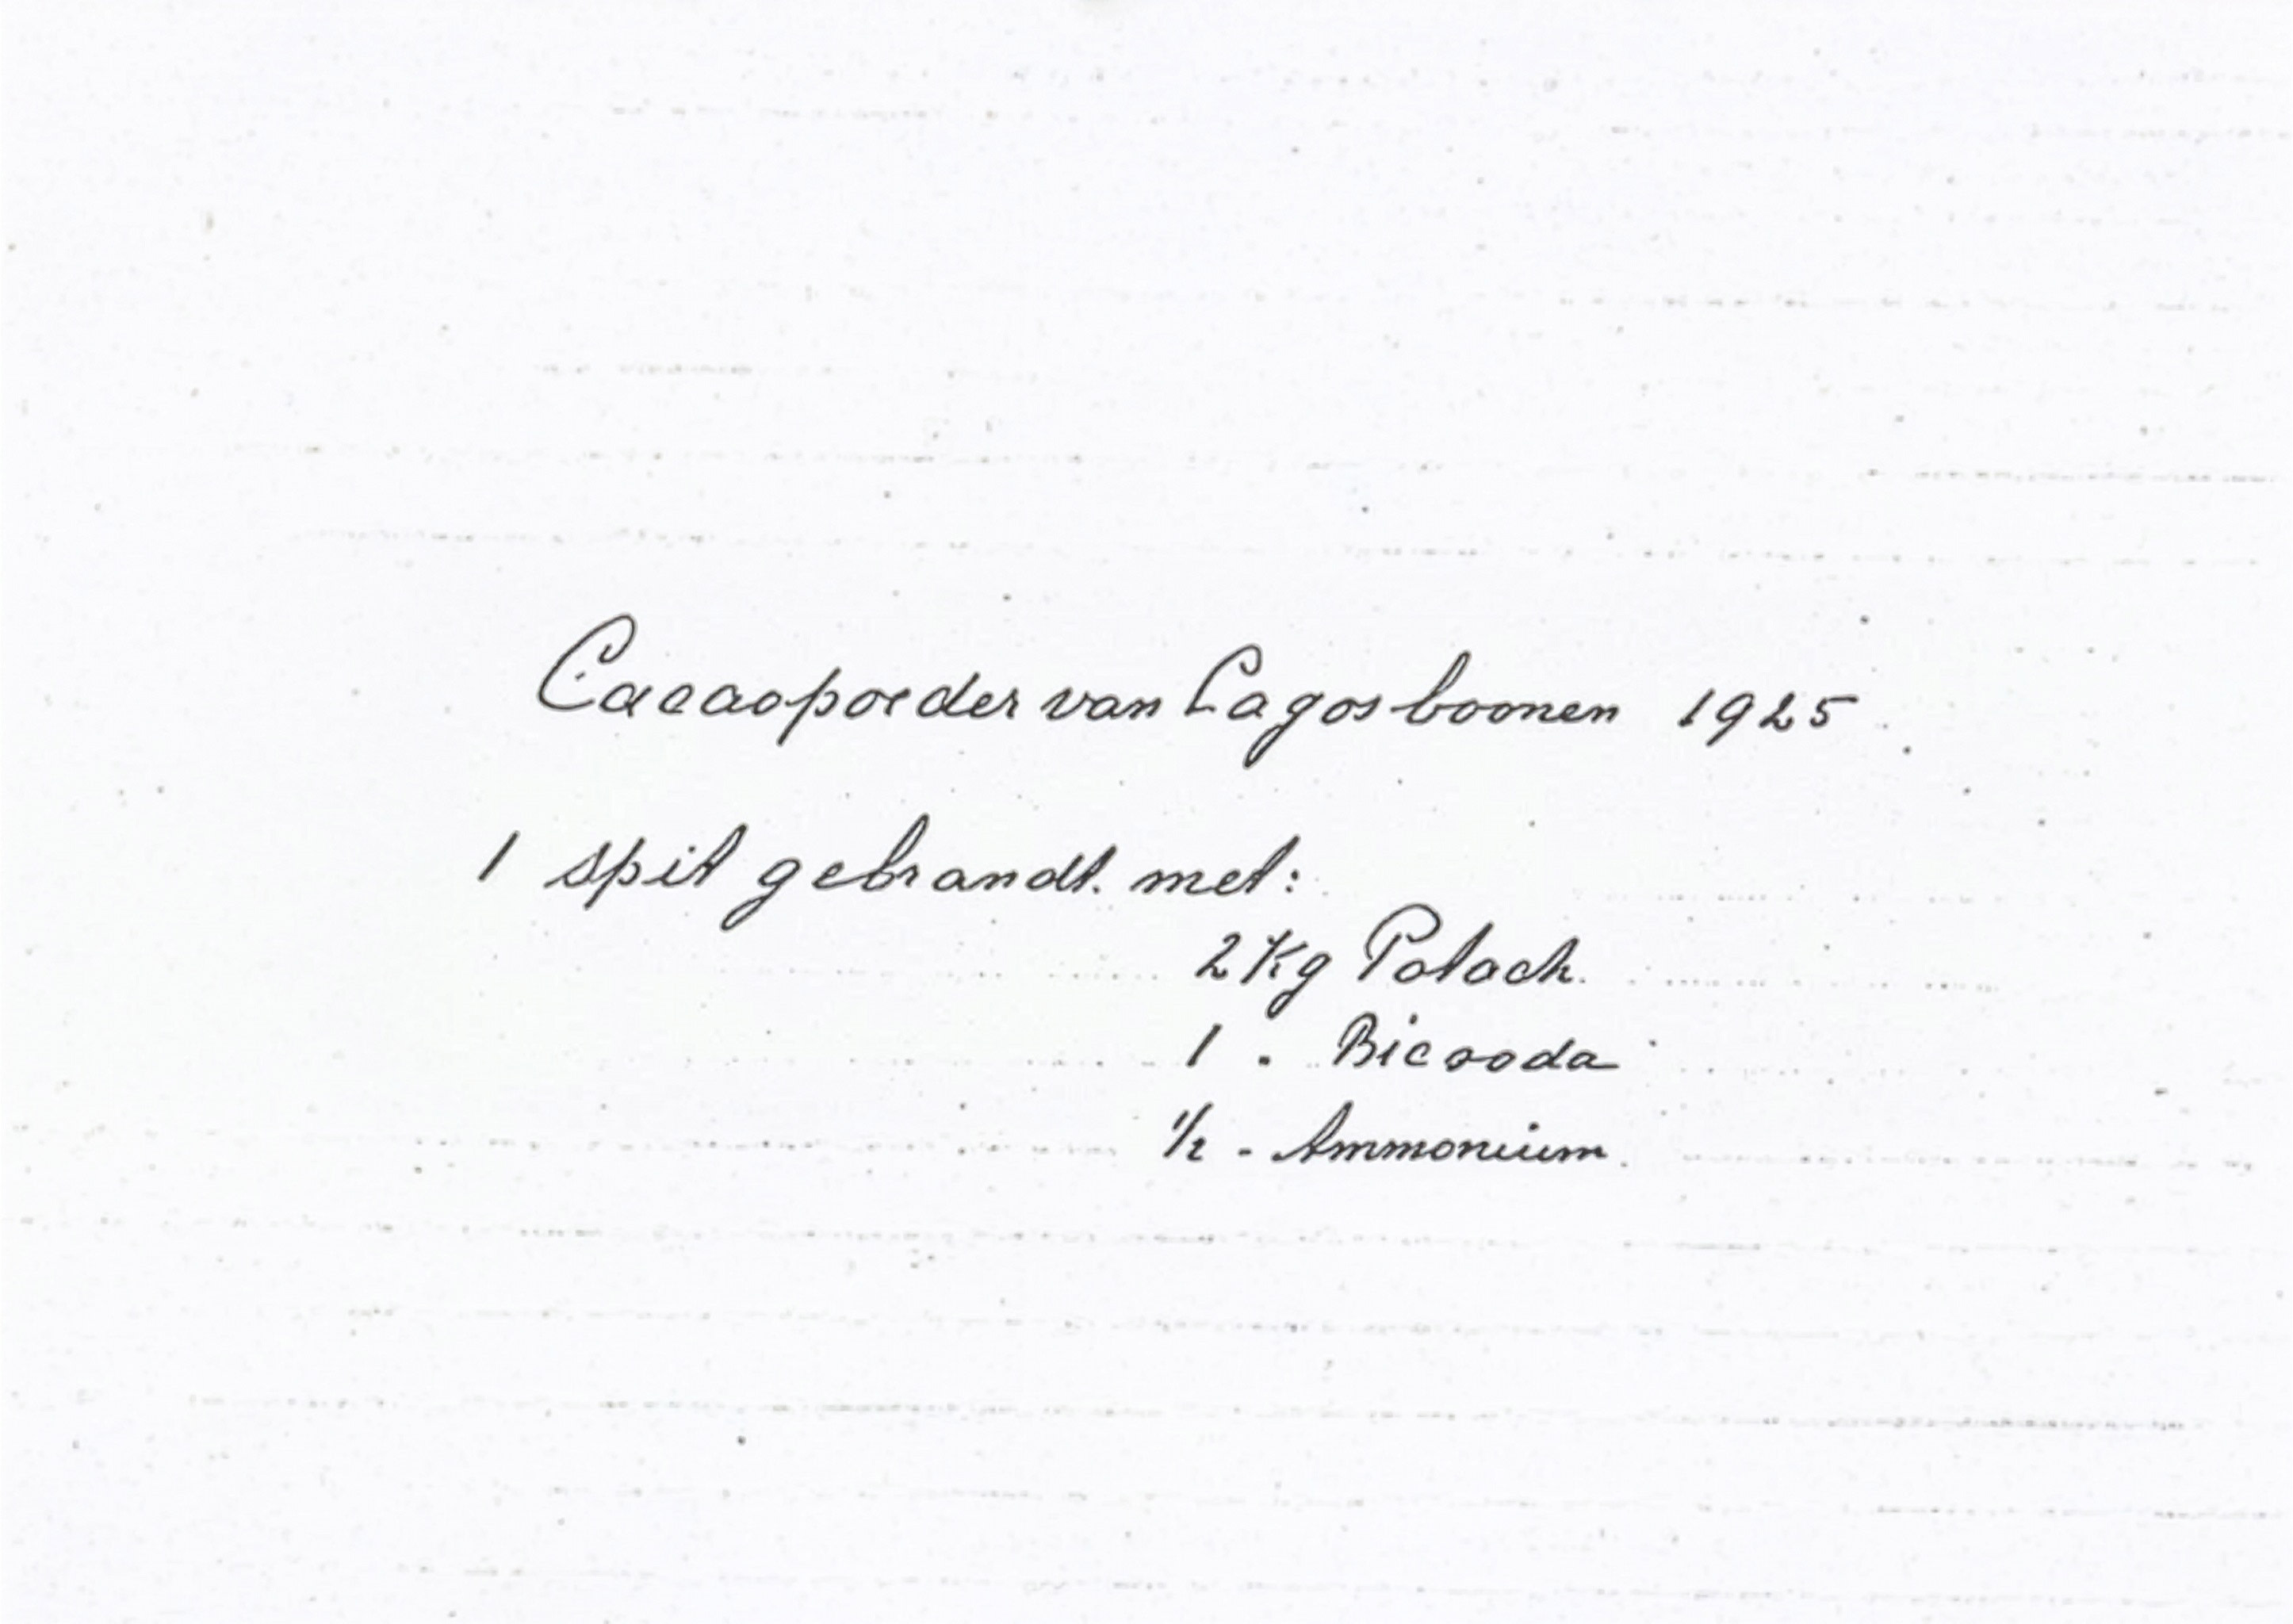 Cacaopoeder van Lagosboonen 1925.
1 spit gebrandt. met:
2 Kg Potach.
1 . Bicsoda
1/2 - Ammonium.